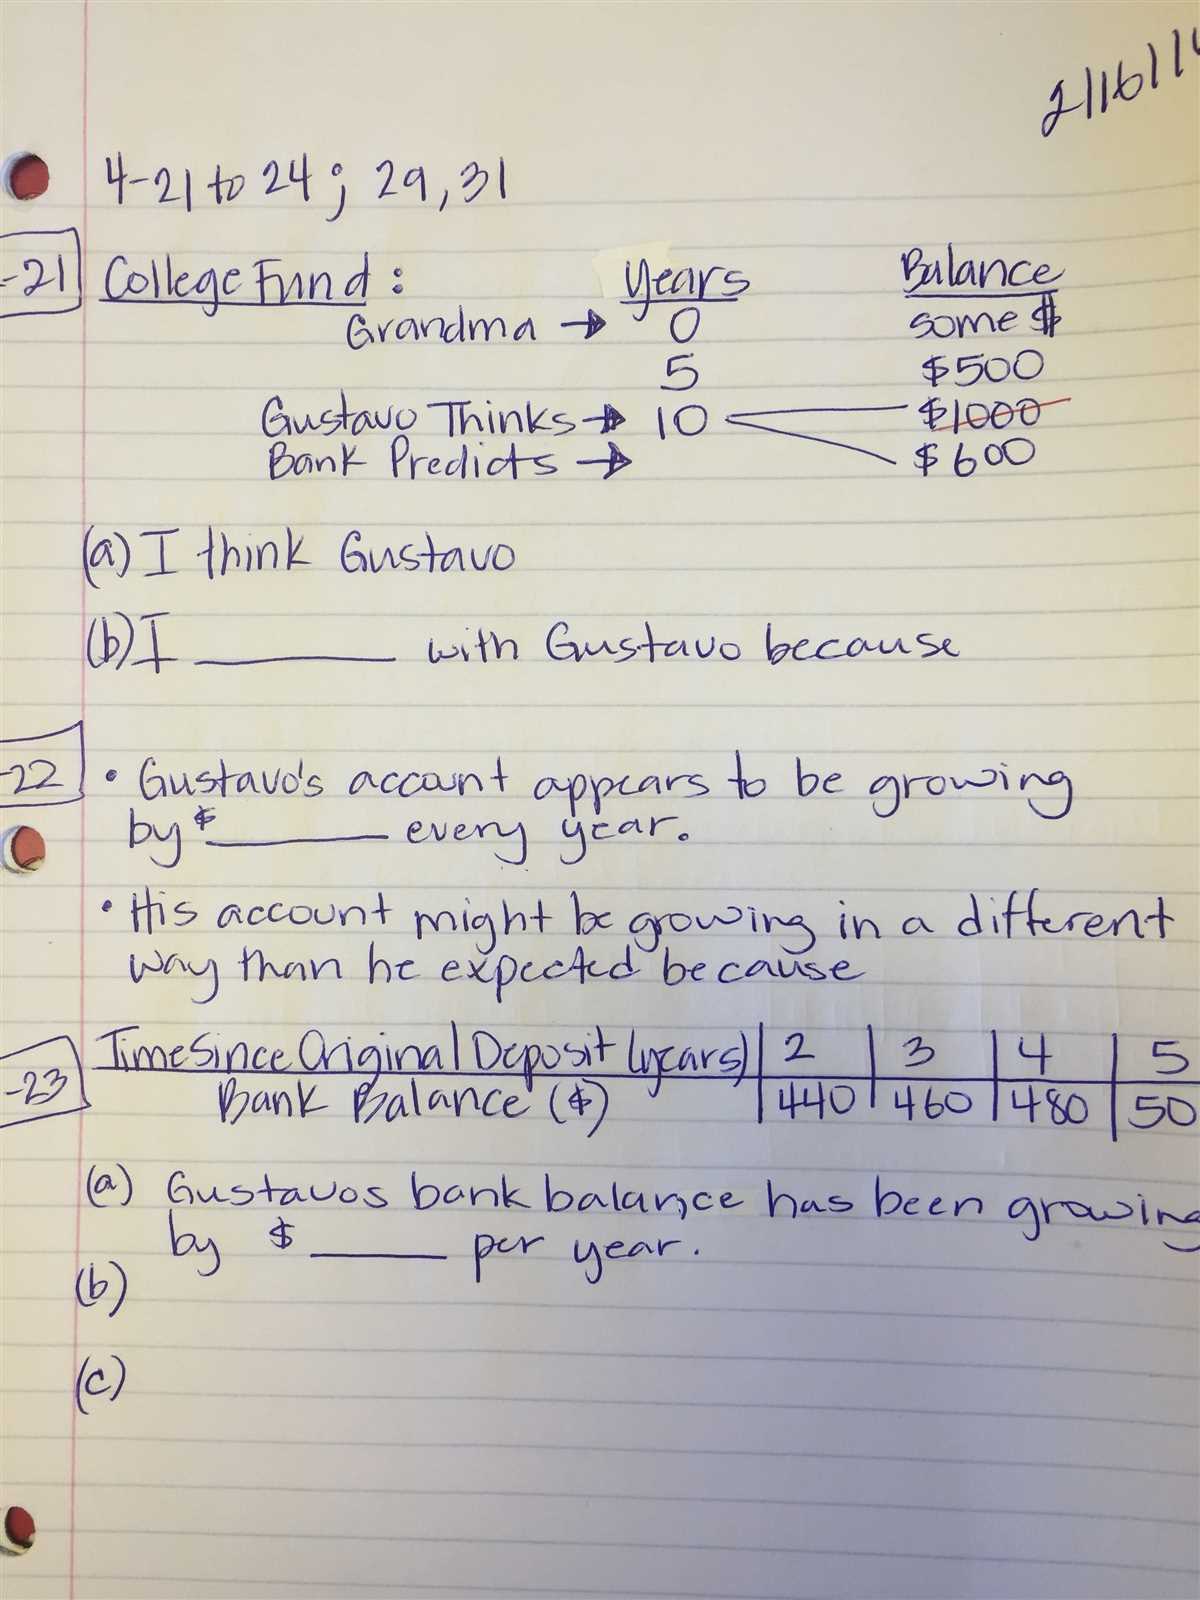 2/16/1
4-21 to 24; 29, 31
-21 College Fund: Years Balance
Grandma → 0 some $
5 $500
Gustavo Thinks → 10 $1000
Bank Predicts → $600
(a) I think Gustavo
(b) I ______ with Gustavo because
-22 • Gustavo's account appears to be growing
by $______ every year.
• His account might be growing in a different
way than he expected because
-23 Time Since Original Deposit (years) 2 3 4 5
Bank Balance ($) 440 460 480 50
(a) Gustavos bank balance has been growing
by $ ______ per year.
(b)
(c)